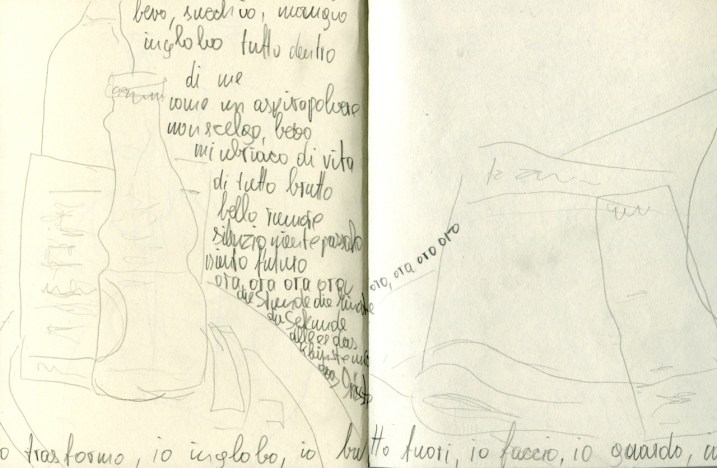 bevo, succhio, mangio
inglobo tutto dentro
di me
come un aspirapolvere
non scelgo, bevo
mi ubriaco di vita
di tutto brutto
bello rumore
silenzio niente passato
niente futuro
ora, ora ora ora,
ora, ora ora ora
die Stunde die
die Sekunde
alles das
das
o trasformo, io inglobo, io butto fuori, io faccio, io guardo,